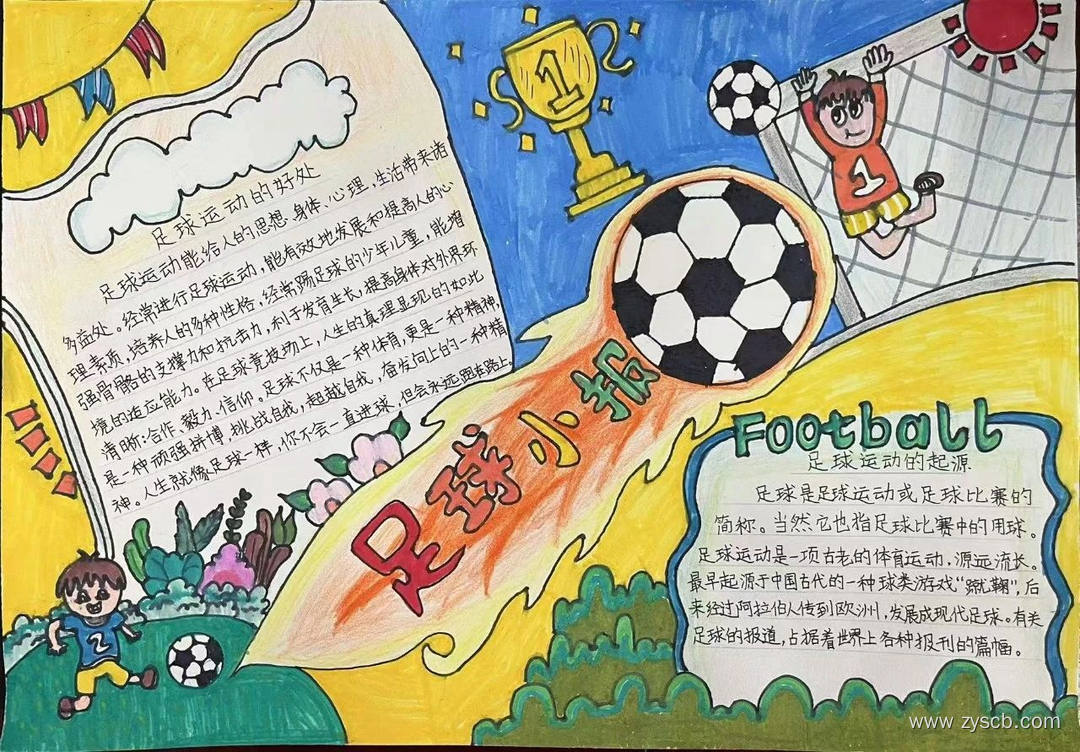 足球运动的好处
足球运动能给人的思想、身体、心理、生活带来诸
多益处。经常进行足球运动,能有效地发展和提高人的心
理素质,培养人的多种性格,经常踢足球的少年儿童,能增
强骨骼的支撑力和抗击力,利于发育生长,提高身体对外界环
境的适应能力。在足球竞技场上,人生的真理显现的如此
清晰:合作、毅力、信仰。足球不仅是一种体育,更是一种精神,
是一种顽强拼搏,挑战自我,超越自我,奋发向上的一种精
神。人生就像足球一样,你不会一直进球,但会永远跑在路上。
1
1
2
足球小报
Football
足球运动的起源
足球是足球运动或足球比赛的
简称。当然它也指足球比赛中的用球。
足球运动是一项古老的体育运动,源远流长。
最早起源于中国古代的一种球类游戏“蹴鞠”,后
来经过阿拉伯人传到欧洲,发展成现代足球。有关
足球的报道,占据着世界上各种报刊的篇幅。
www.zyscb.com